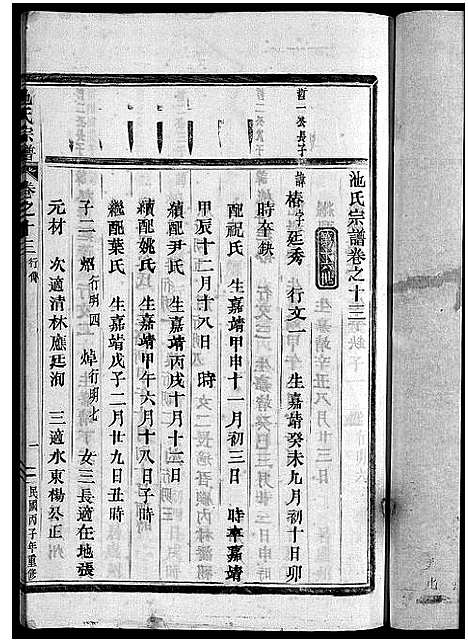 池氏宗譜卷之十三
哲一公長子
諱椿字廷秀 行文一 生嘉靖癸未九月初十日卯
時卒缺
配祝氏 生嘉靖甲申十一月初三日 時卒嘉靖
甲辰十二月十八日 時
續配尹氏 生嘉靖丙戌十月十二日
續配姚氏 生嘉靖甲午六月十八日子時
繼配葉氏 生嘉靖戊子二月廿九日丑時
子二 行明四 焯行明七 女三長適在地張
元材 次適清林應廷洵 三適水東楊公正
池氏宗譜 卷之十三 行傳 一 民國丙子年重修